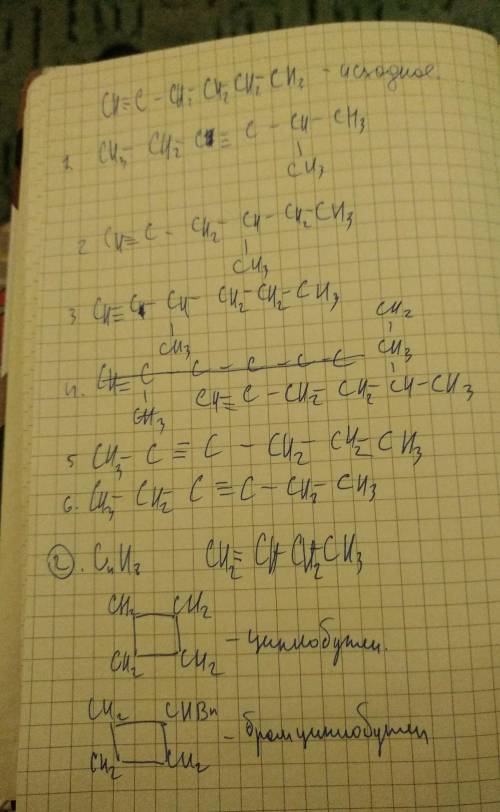 CH≡C - CH₂ - CH₂ CH₂ - CH₂ - исходное.
1. CH₃ - CH₂ C≡C - CH - CH₃
CH₃
2. CH≡C - CH₂ - CH - CH₂ - CH₃
CH₃
3. CH≡C - CH - CH₂ - CH₂ - CH₃
CH₃
4. CH≡C - C - C - C - C
CH₃
CH₂
CH₃
CH≡C - CH₂ - CH₂ - CH - CH₃
5 CH₃ - C ≡ C - CH₂ - CH₂ - CH₃
6. CH₃ - CH₂ - C ≡ C - CH₂ - CH₃
2. C₄H₈ CH₂ = CH CH₂ CH₃
CH₂ CH₂
CH₂ CH₂ - циклобутен.
CH₂ CHBr
CH₂ CH₂ - бромциклобутен